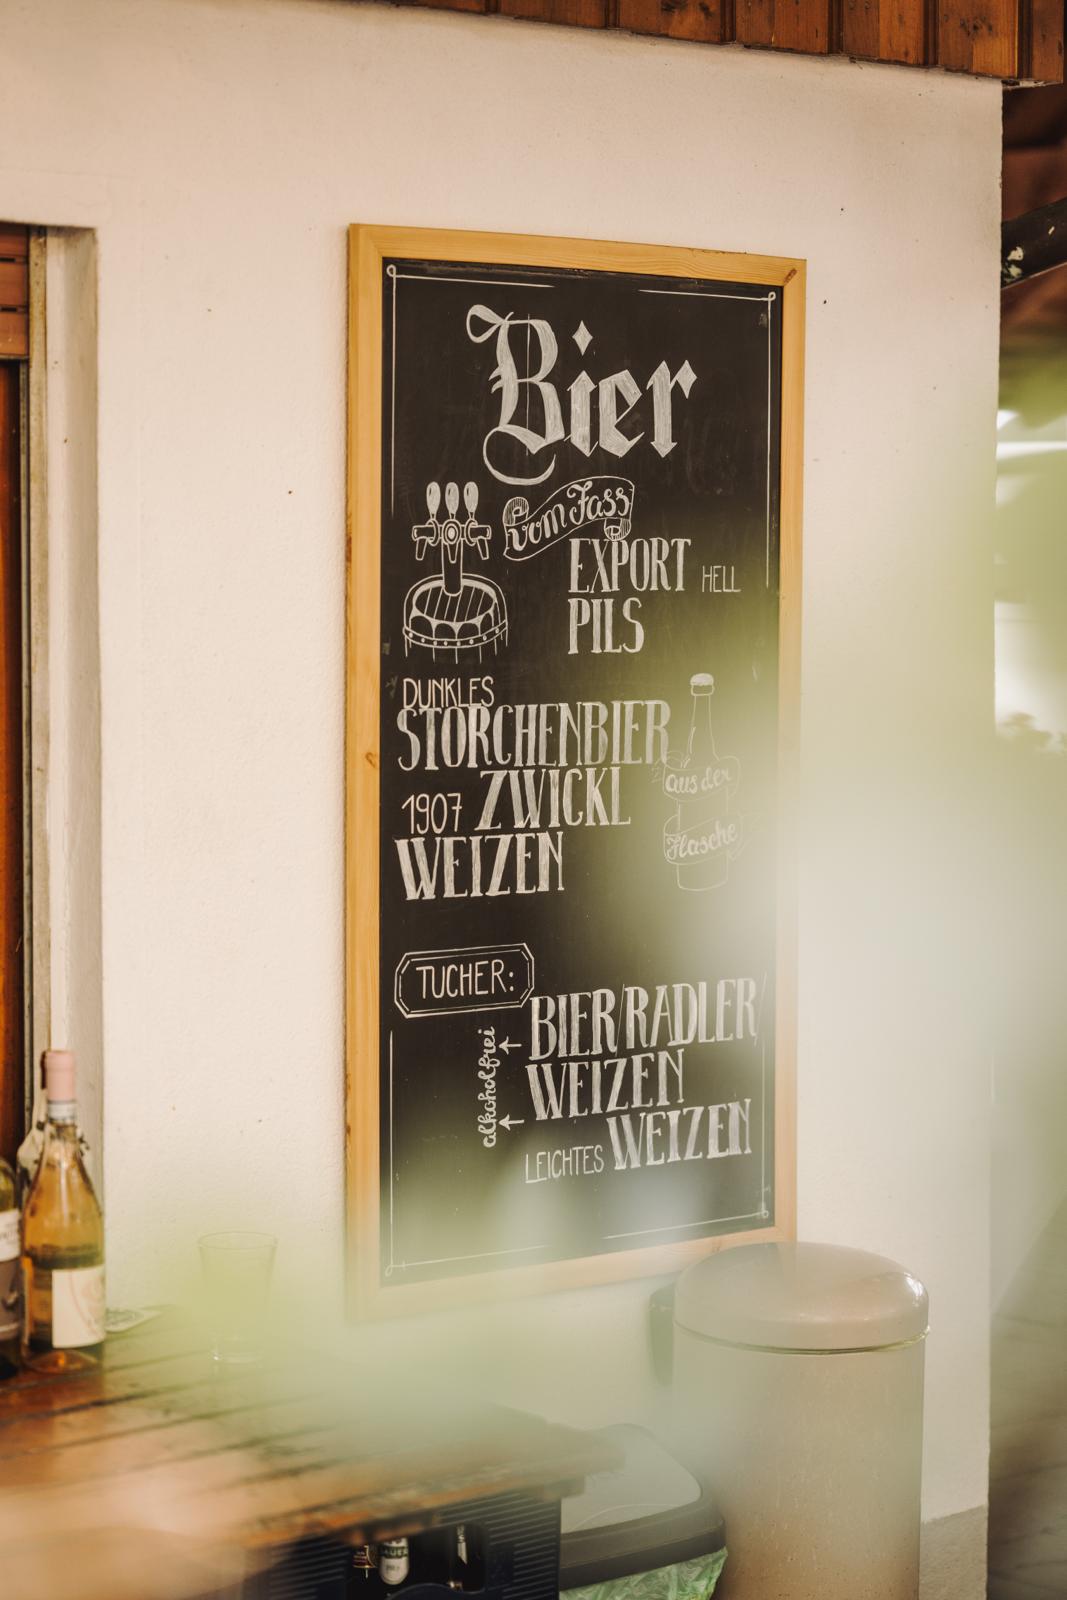 Bier
vom Fass
EXPORT HELL
PILS
DUNKLES
STORCHENBIER
1907 ZWICKL
WEIZEN
aus der
Flasche
TUCHER:
BIER/RADLER/
WEIZEN
alkoholfrei
LEICHTES WEIZEN